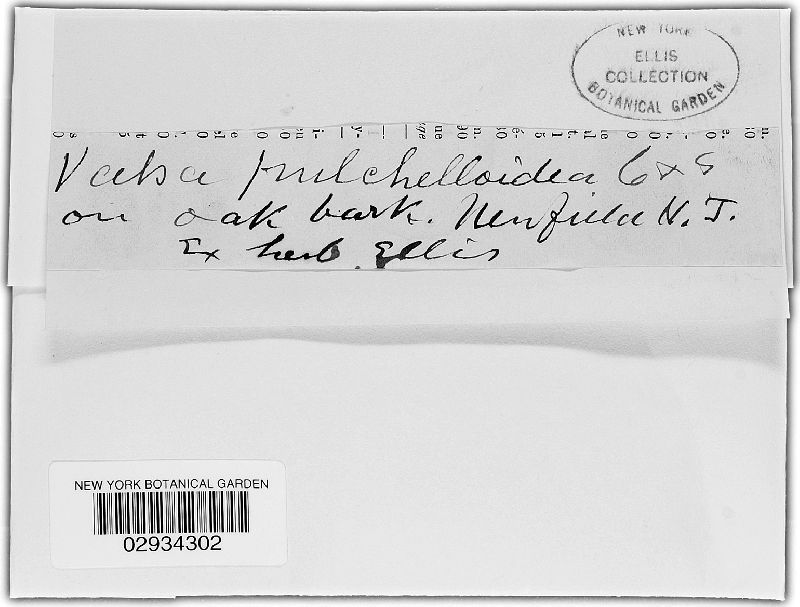 NEW YORK
ELLIS
COLLECTION
BOTANICAL GARDEN
Valsa pulchelloidea C & E
on oak bark. Newfield N. J.
Ex herb. Ellis
NEW YORK BOTANICAL GARDEN
02934302